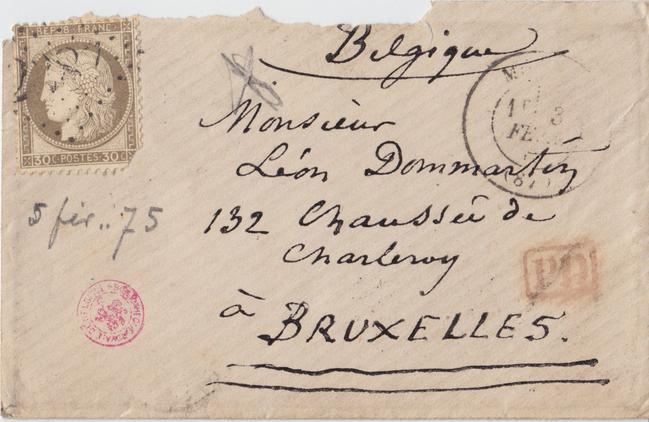 RÉPUB. FRANC.
30 C · POSTES · 30 C
Belgique
1
3
FE
(87)
Monsieur
Léon Dommartin
132 Chaussée de
Charleroy
à
BRUXELLES.
5 fév.. 75
PD